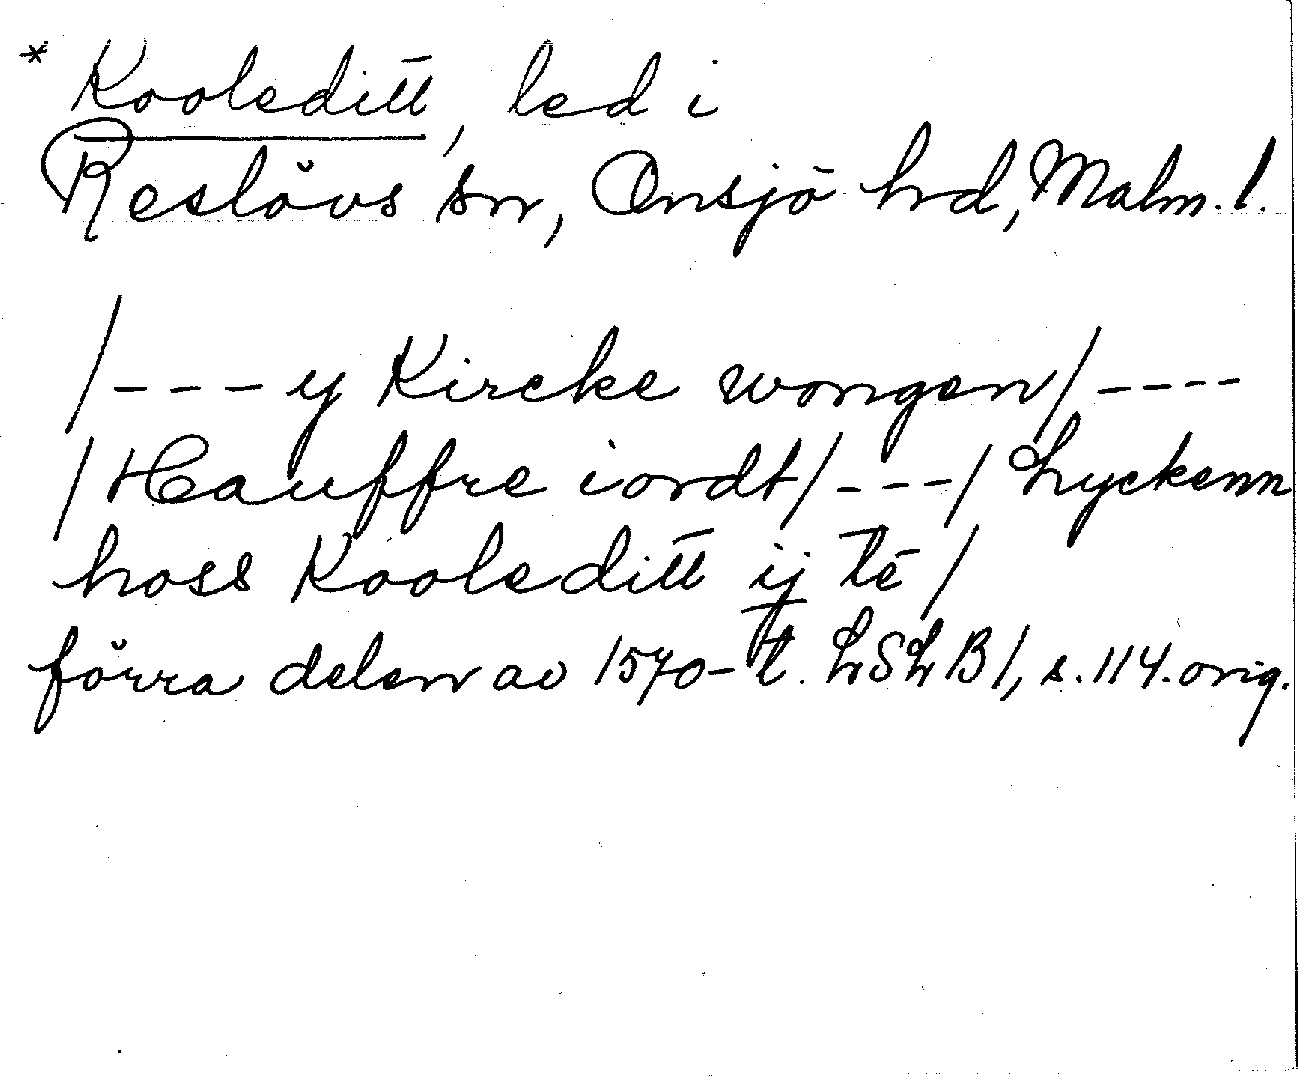 * Kooleditt, led i
Reslövs sn, Onsjö hd, Malm. l.
/- - - y Kircke wongen/ - - - -
/ Hauffre iordt/ - - - / Lyckenn
hoss Kooleditt ij tē /
förra delen av 1570-t. LSLB1, s. 114. orig.